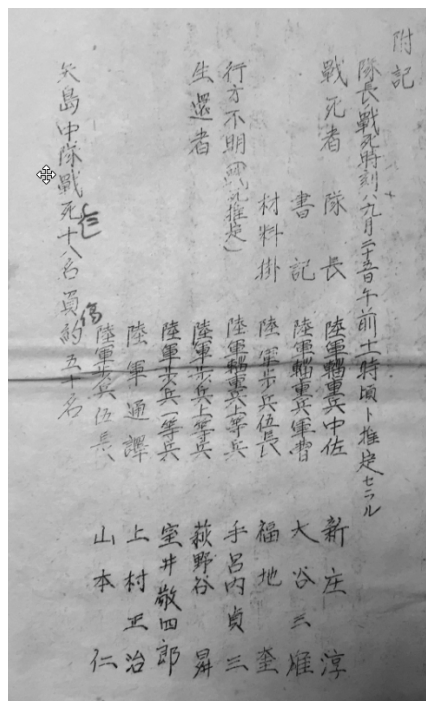 附記
隊長戦死時刻ハ九月二十五日午前十一時頃ト推定セラル
戦死者 隊長 陸軍輜重兵中佐 新庄淳
書記 陸軍輜重兵軍曹 大谷三雄
材料掛 陸軍歩兵伍長 福地奎
行方不明(戦死推定) 陸軍輜重兵上等兵 手呂内貞三
生還者 陸軍歩兵上等兵 萩野谷昇
陸軍歩兵一等兵 室井敬四郎
陸軍通譯 上村正治
陸軍歩兵伍長 山本仁
矢島中隊戦死十八名 負傷約五十名